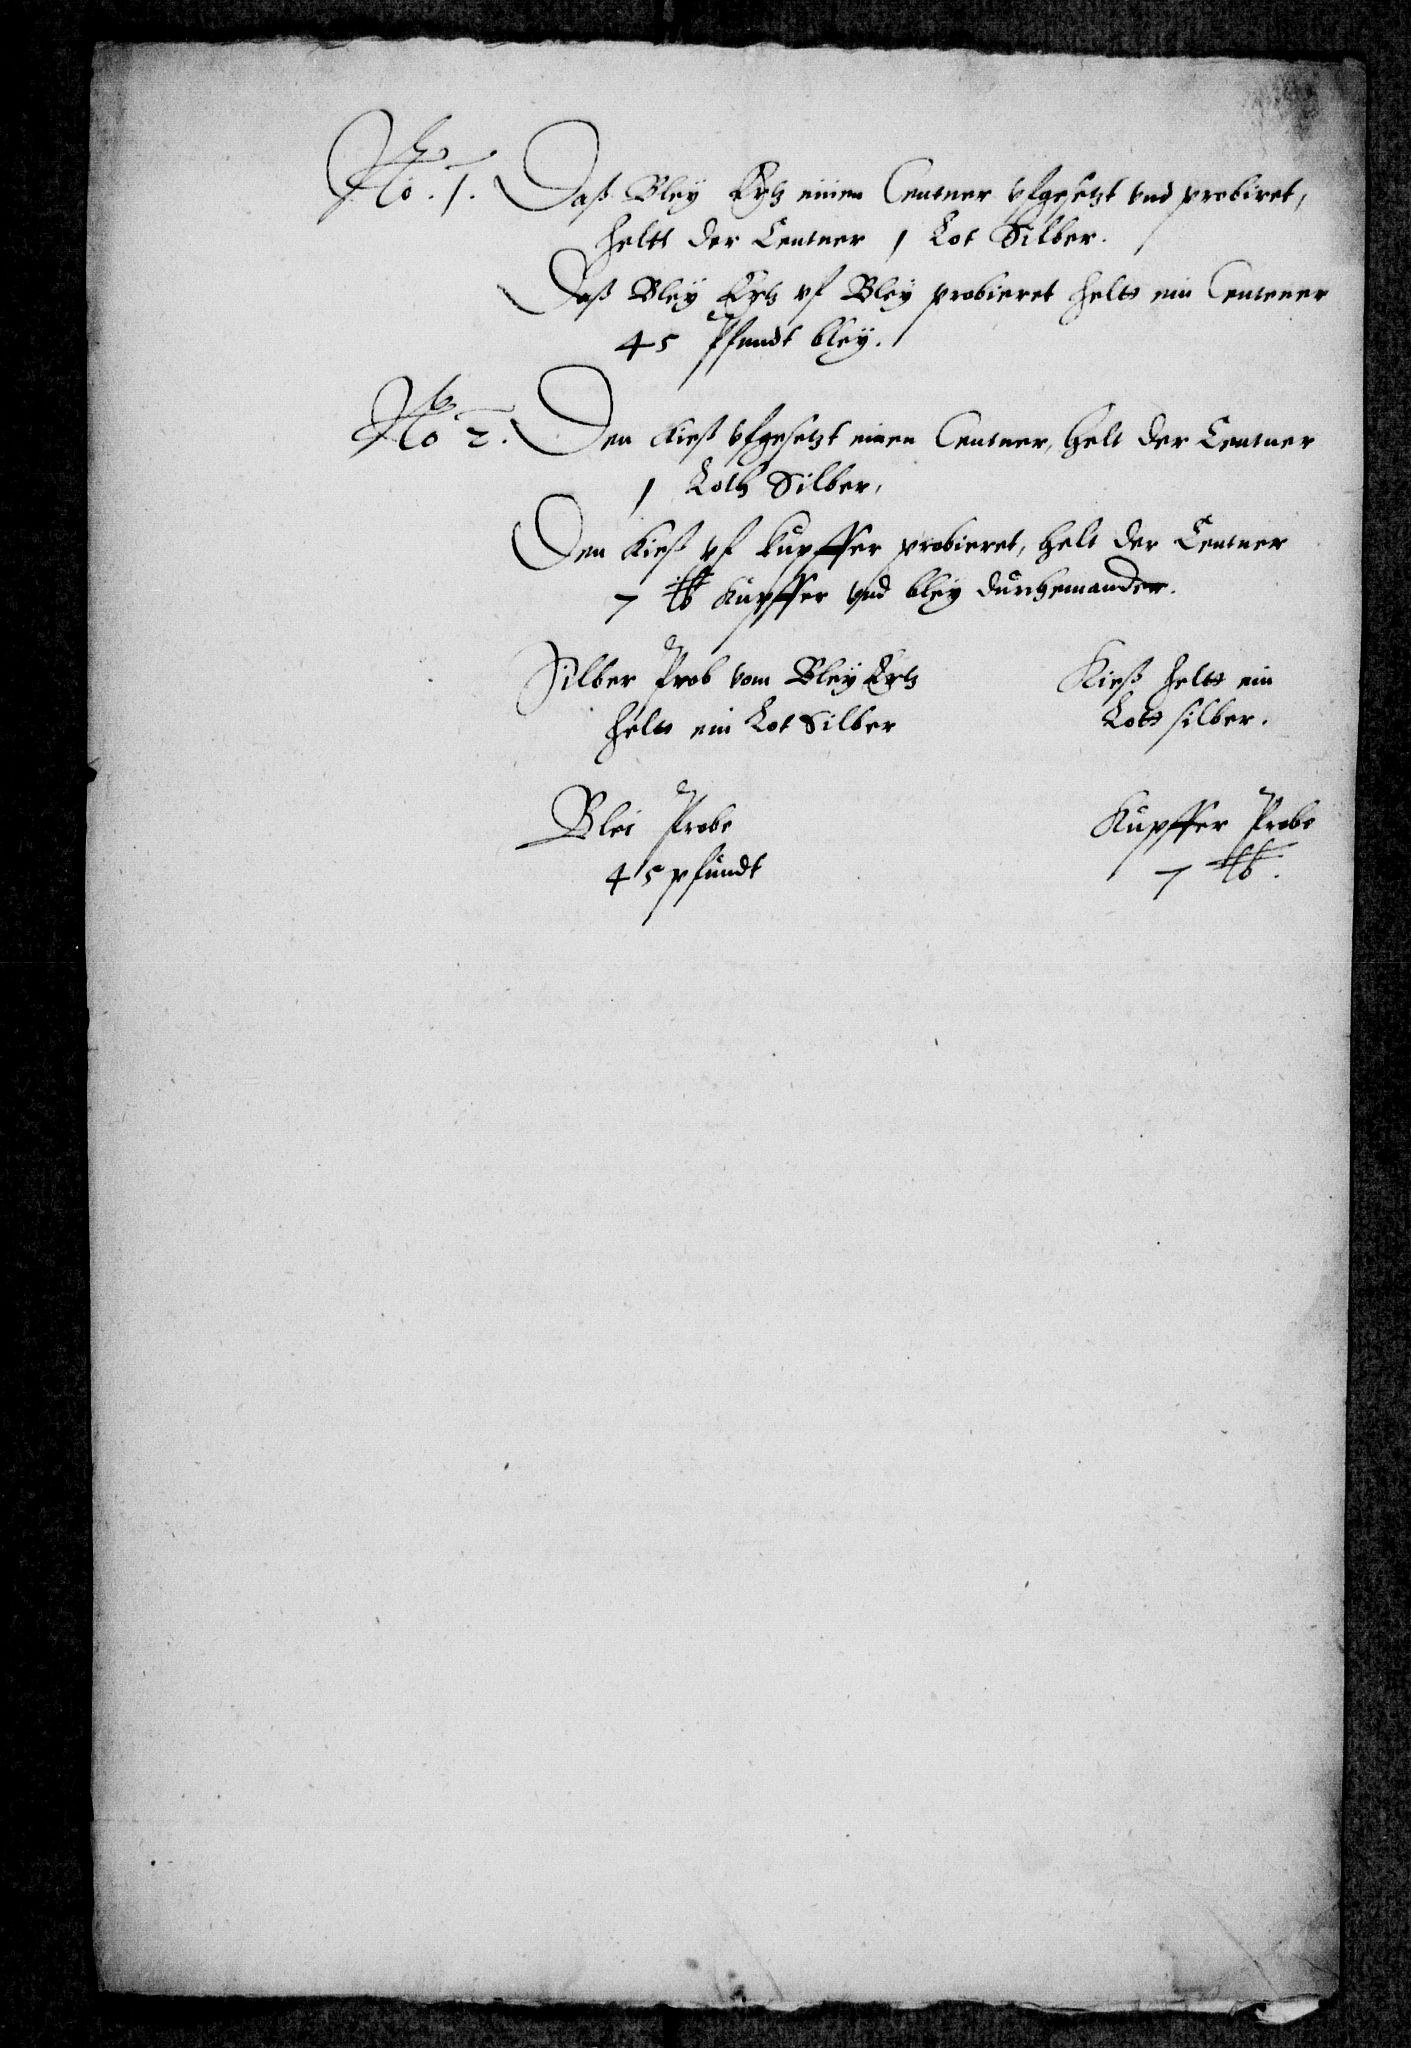 No. 1. Daß Bley Ertz einen Centner vfgesetzt vnd probiret,
heltt der Centner 1 Lot Silber.
Daß Bley Ertz vf Bley probieret heltt ein Centener
45 Pfundt bley.
No 2. Den Kieß vfgesetzt einen Centner, helt der Centner
1 Loth Silber,
Den Kieß vf kupffer probieret, helt der Centner
7 ℔ Kupffer vnd bley durcheinander.
Silber Prob vom Bley Ertz
heltt ein Lot Silber
Kieß heltt ein
Lott silber.
Blei Probe
45 pfundt
Kupffer Probe
7 ℔.